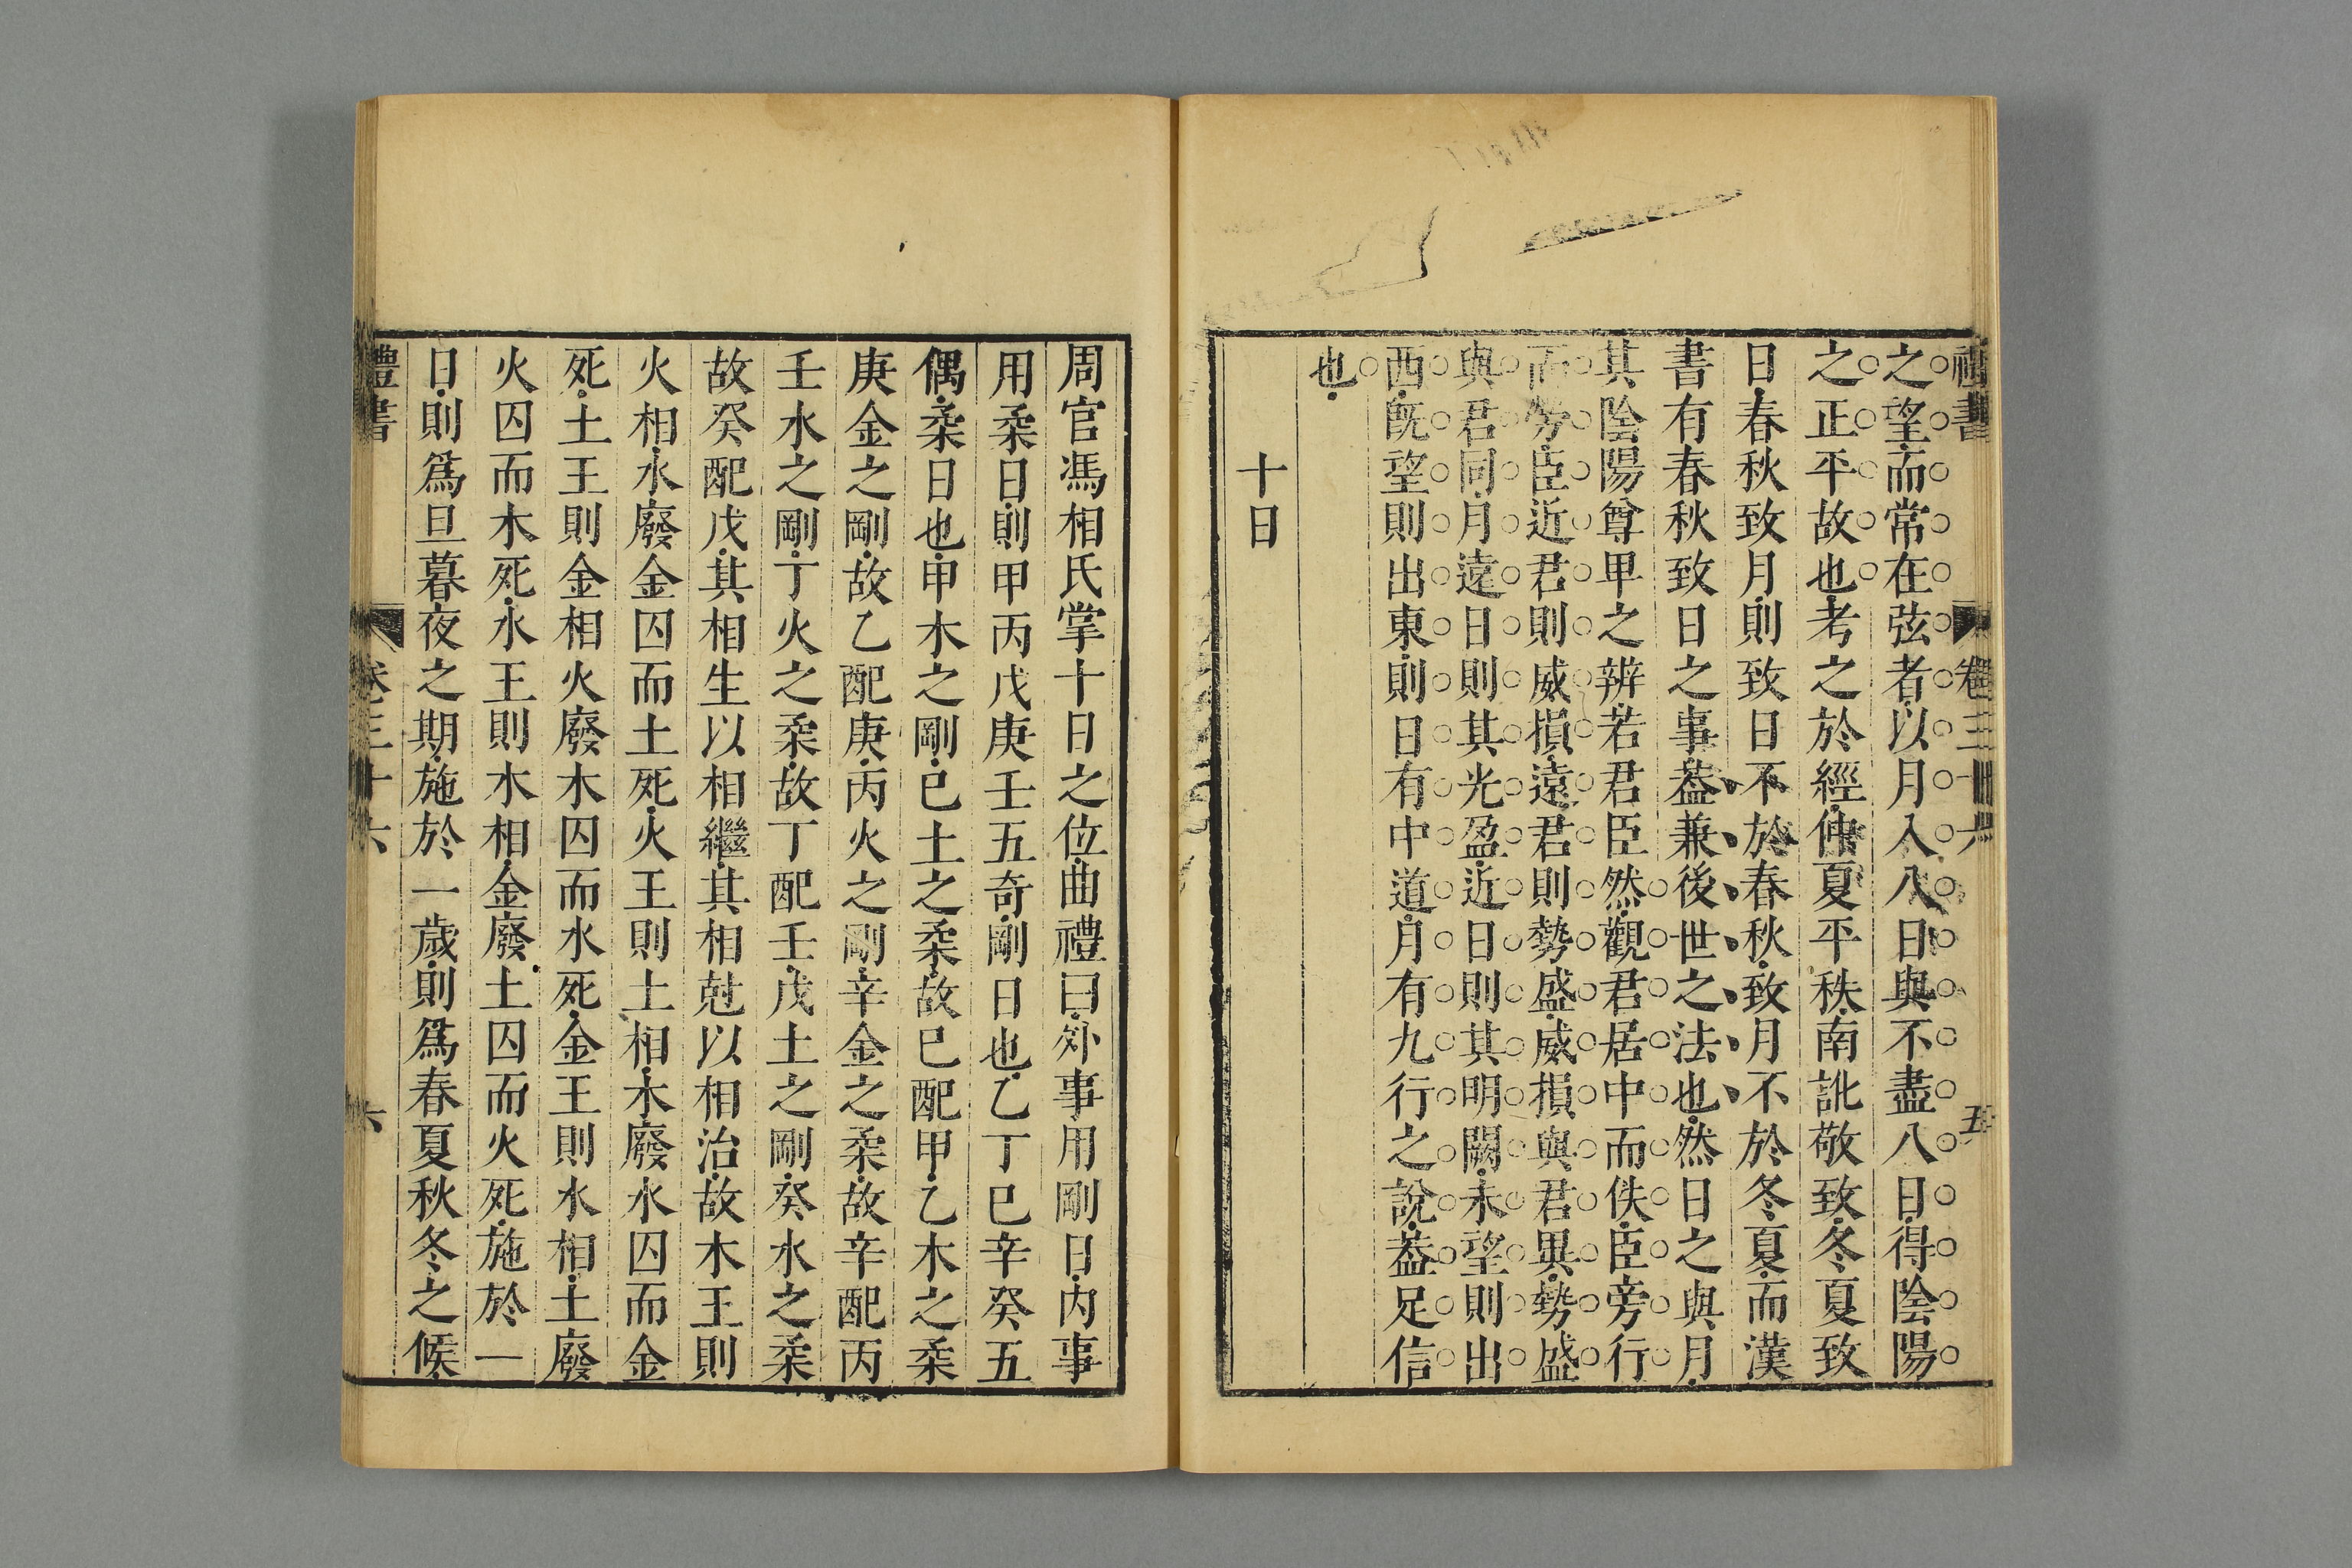 禮書 卷三十六 五
之望而常在弦者以月入八日與不盡八日得陰陽
之正平故也考之於經仲夏平秩南訛敬致冬夏致
日春秋致月則致日不於春秋致月不於冬夏而漢
書有春秋致日之事葢兼後世之法也然日之與月
其陰陽尊卑之辨若君臣然觀君居中而佚臣旁行
而勞臣近君則威損遠君則勢盛威損與君異勢盛
與君同月遠日則其光盈近日則其明闕未望則出
西旣望則出東則日有中道月有九行之說葢足信
也
十日
周官馮相氏掌十日之位曲禮曰外事用剛日內事
用柔日則甲丙戊庚壬五奇剛日也乙丁巳辛癸五
偶柔日也甲木之剛巳土之柔故巳配甲乙木之柔
庚金之剛故乙配庚丙火之剛辛金之柔故辛配丙
壬水之剛丁火之柔故丁配壬戊土之剛癸水之柔
故癸配戊其相生以相繼其相尅以相治故木王則
火相水廢金囚而土死火王則土相木廢水囚而金
死土王則金相火廢木囚而水死金王則水相土廢
火囚而木死水王則木相金廢土囚而火死施於一
日則爲旦暮夜之期施於一歲則爲春夏秋冬之候
禮書 卷三十六 六